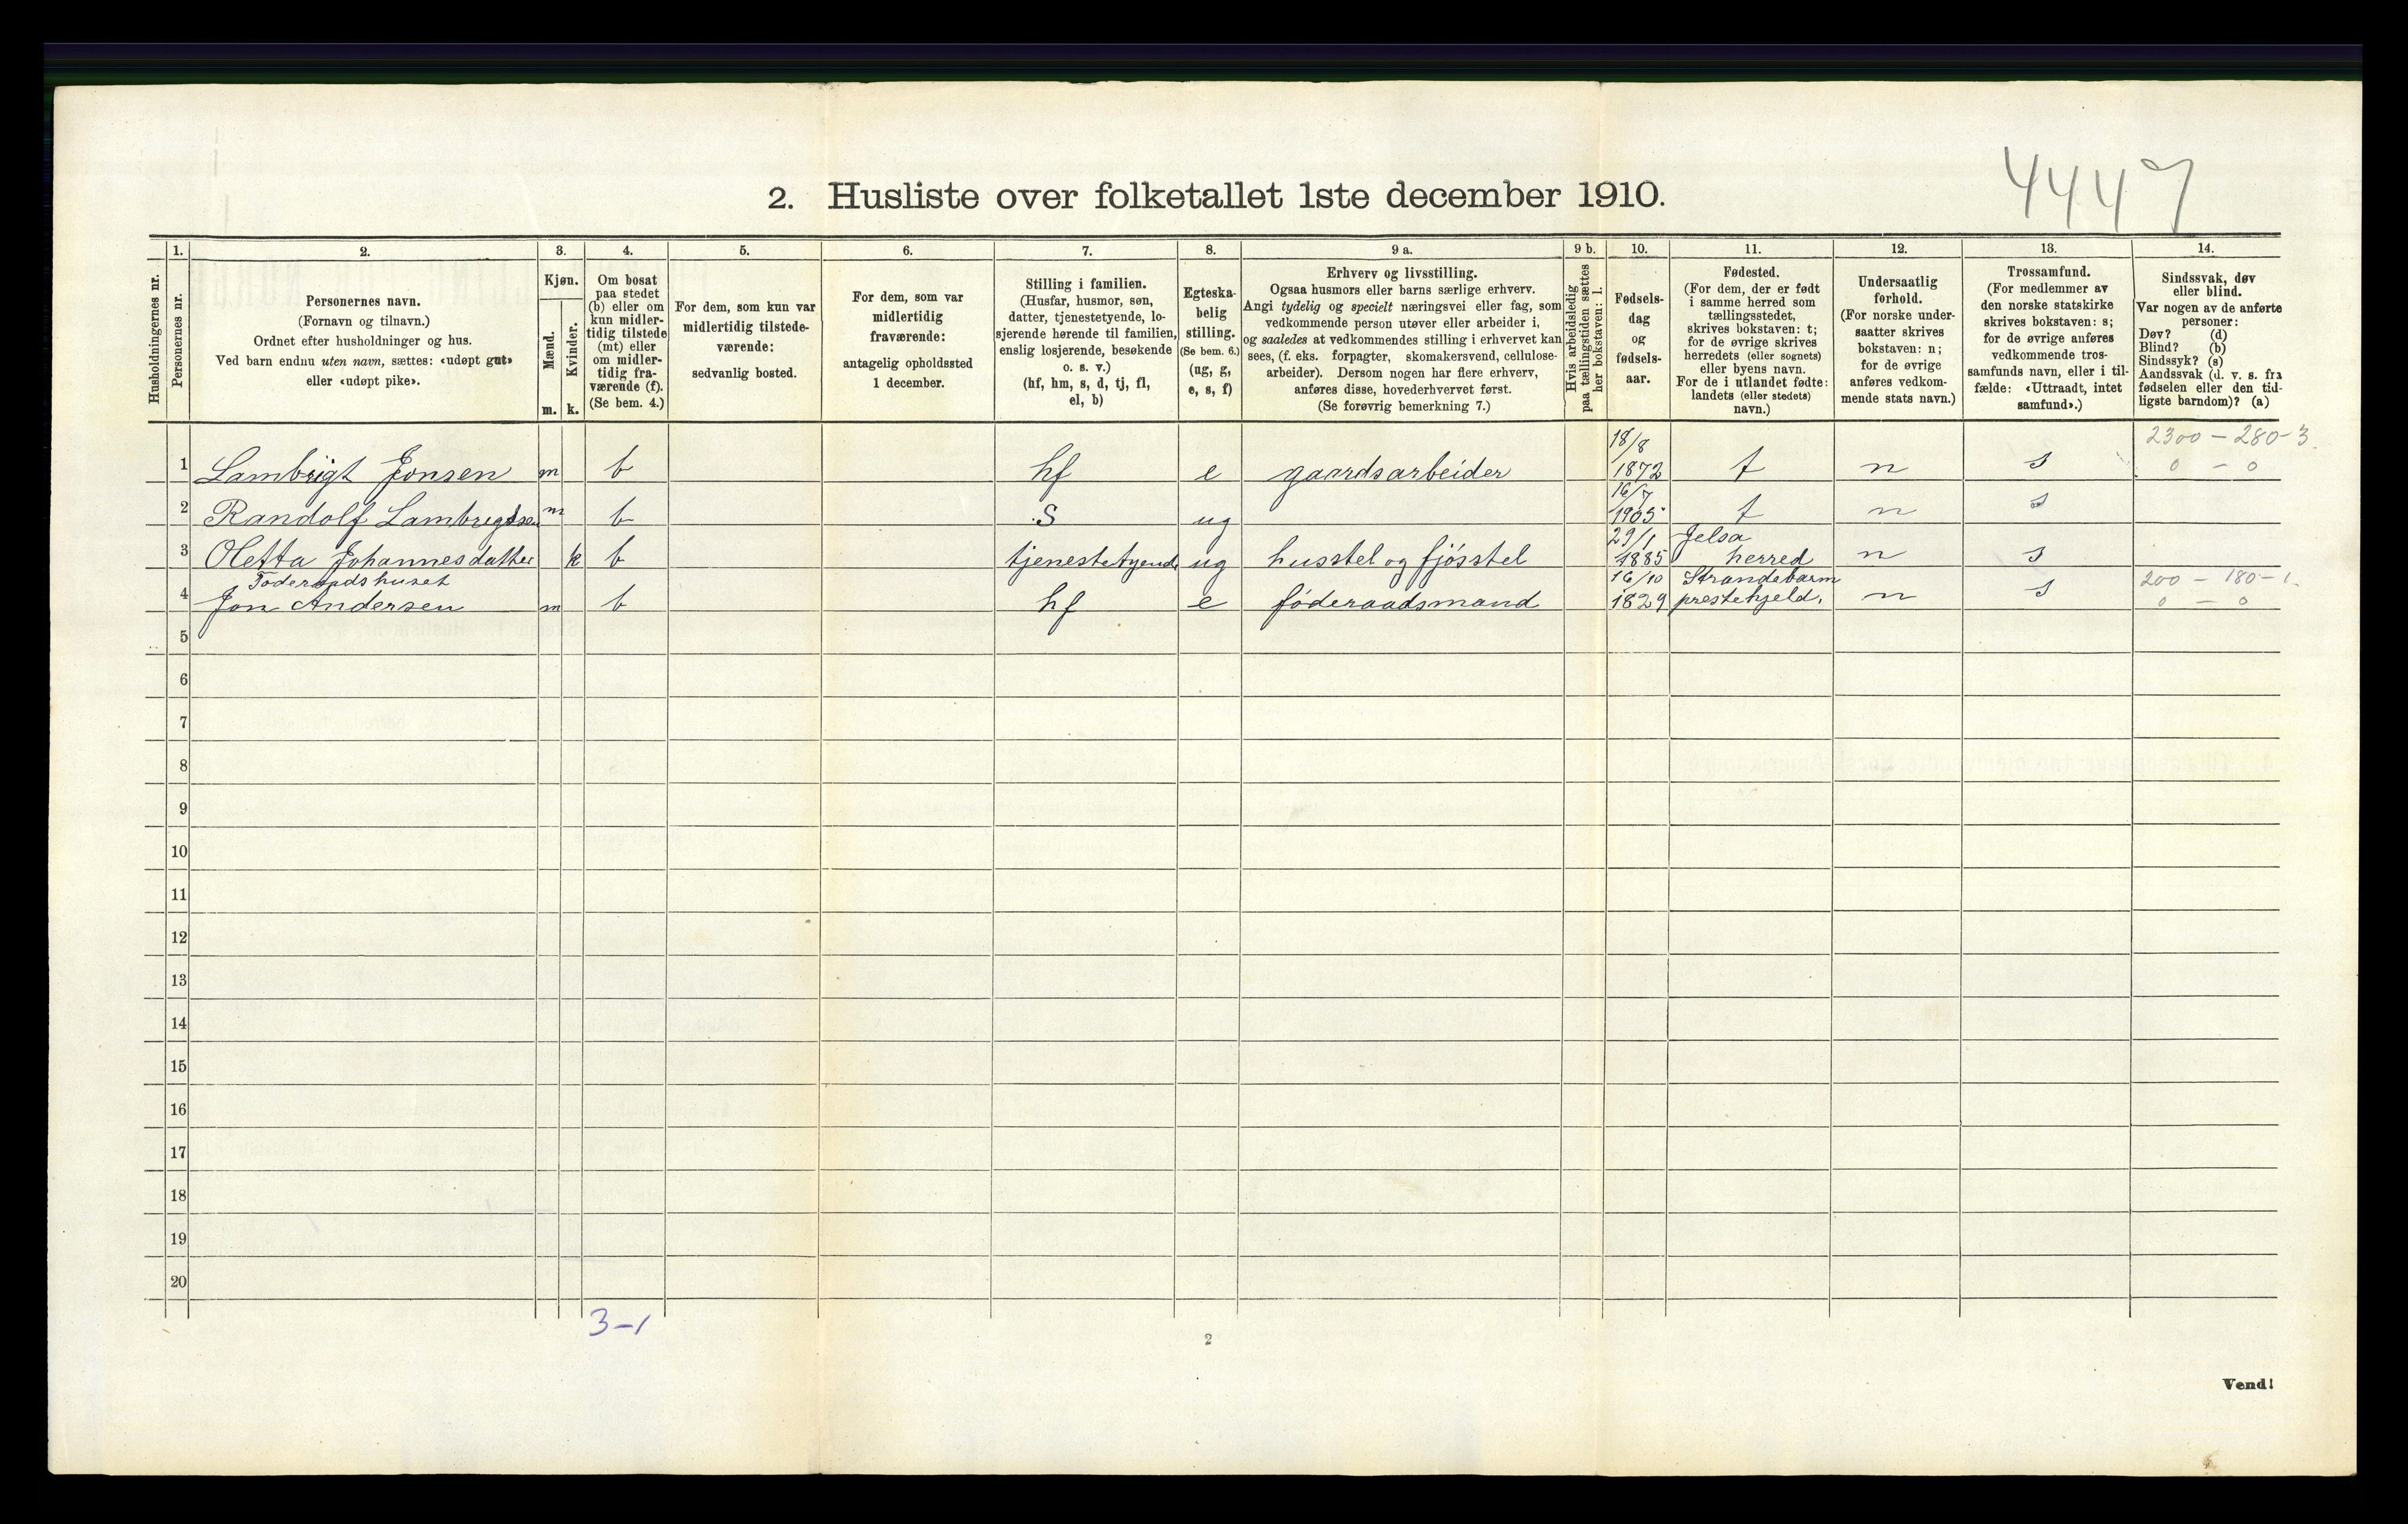 4447
2. Husliste over folketallet 1ste december 1910.
Husholdningernes nr.
1. Personernes nr.
2. Personernes navn.
(Fornavn og tilnavn.)
Ordnet efter husholdninger og hus.
Ved barn endnu uten navn, sættes: «udøpt gut»
eller «udøpt pike».
3. Kjøn.
Mænd. m.
Kvinder. k.
4. Om bosat
paa stedet
(b) eller om
kun midler-
tidig tilstede
(mt) eller
om midler-
tidig fra-
værende (f).
(Se bem. 4.)
5. For dem, som kun var
midlertidig tilstede-
værende:
sedvanlig bosted.
6. For dem, som var
midlertidig
fraværende:
antagelig opholdssted
1 december.
7. Stilling i familien.
(Husfar, husmor, søn,
datter, tjenestetyende, lo-
sjerende hørende til familien,
enslig losjerende, besøkende
o. s. v.)
(hf, hm, s, d, tj, fl,
el, b)
8. Egteska-
belig
stilling.
(Se bem. 6.)
(ug, g,
e, s, f)
9 a. Erhverv og livsstilling.
Ogsaa husmors eller barns særlige erhverv.
Angi tydelig og specielt næringsvei eller fag, som
vedkommende person utøver eller arbeider i,
og saaledes at vedkommendes stilling i erhvervet kan
sees, (f. eks. forpagter, skomakersvend, cellulose-
arbeider). Dersom nogen har flere erhverv,
anføres disse, hovederhvervet først.
(Se forøvrig bemerkning 7.)
9 b. Hvis arbeidsledig
paa tællingstiden sættes
her bokstaven: l.
10. Fødsels-
dag
og
fødsels-
aar.
11. Fødested.
(For dem, der er født
i samme herred som
tællingsstedet,
skrives bokstaven: t;
for de øvrige skrives
herredets (eller sognets)
eller byens navn.
For de i utlandet fødte:
landets (eller stedets)
navn.)
12. Undersaatlig
forhold.
(For norske under-
saatter skrives
bokstaven: n;
for de øvrige
anføres vedkom-
mende stats navn.)
13. Trossamfund.
(For medlemmer av
den norske statskirke
skrives bokstaven: s;
for de øvrige anføres
vedkommende tros-
samfunds navn, eller i til-
fælde: «Uttraadt, intet
samfund».)
14. Sindssvak, døv
eller blind.
Var nogen av de anførte
personer:
Døv? (d)
Blind? (b)
Sindssyk? (s)
Aandssvak (d. v. s. fra
fødselen eller den tid-
ligste barndom)? (a)
18/8 2300 - 280-3
1 Lambrigt Jonsen m b hf e gaardsarbeider 1872 t n s 0 - 0
16/7
2 Randolf Lambrigtsen m b s ug 1905 t n s
29/1 Jelsa
3 Oletta Johannesdatter k b tjenestetyende ug husstel og fjösstel 1885 herred n s
Föderaadshuset 16/10 Strandebarm 200 - 180-1.
4 Jon Andersen m b hf e föderaadsmand 1829 prestehjeld. n s 0 - 0
5
6
7
8
9
10
11
12
13
14
15
16
17
18
19
20
3-1
2
Vend!